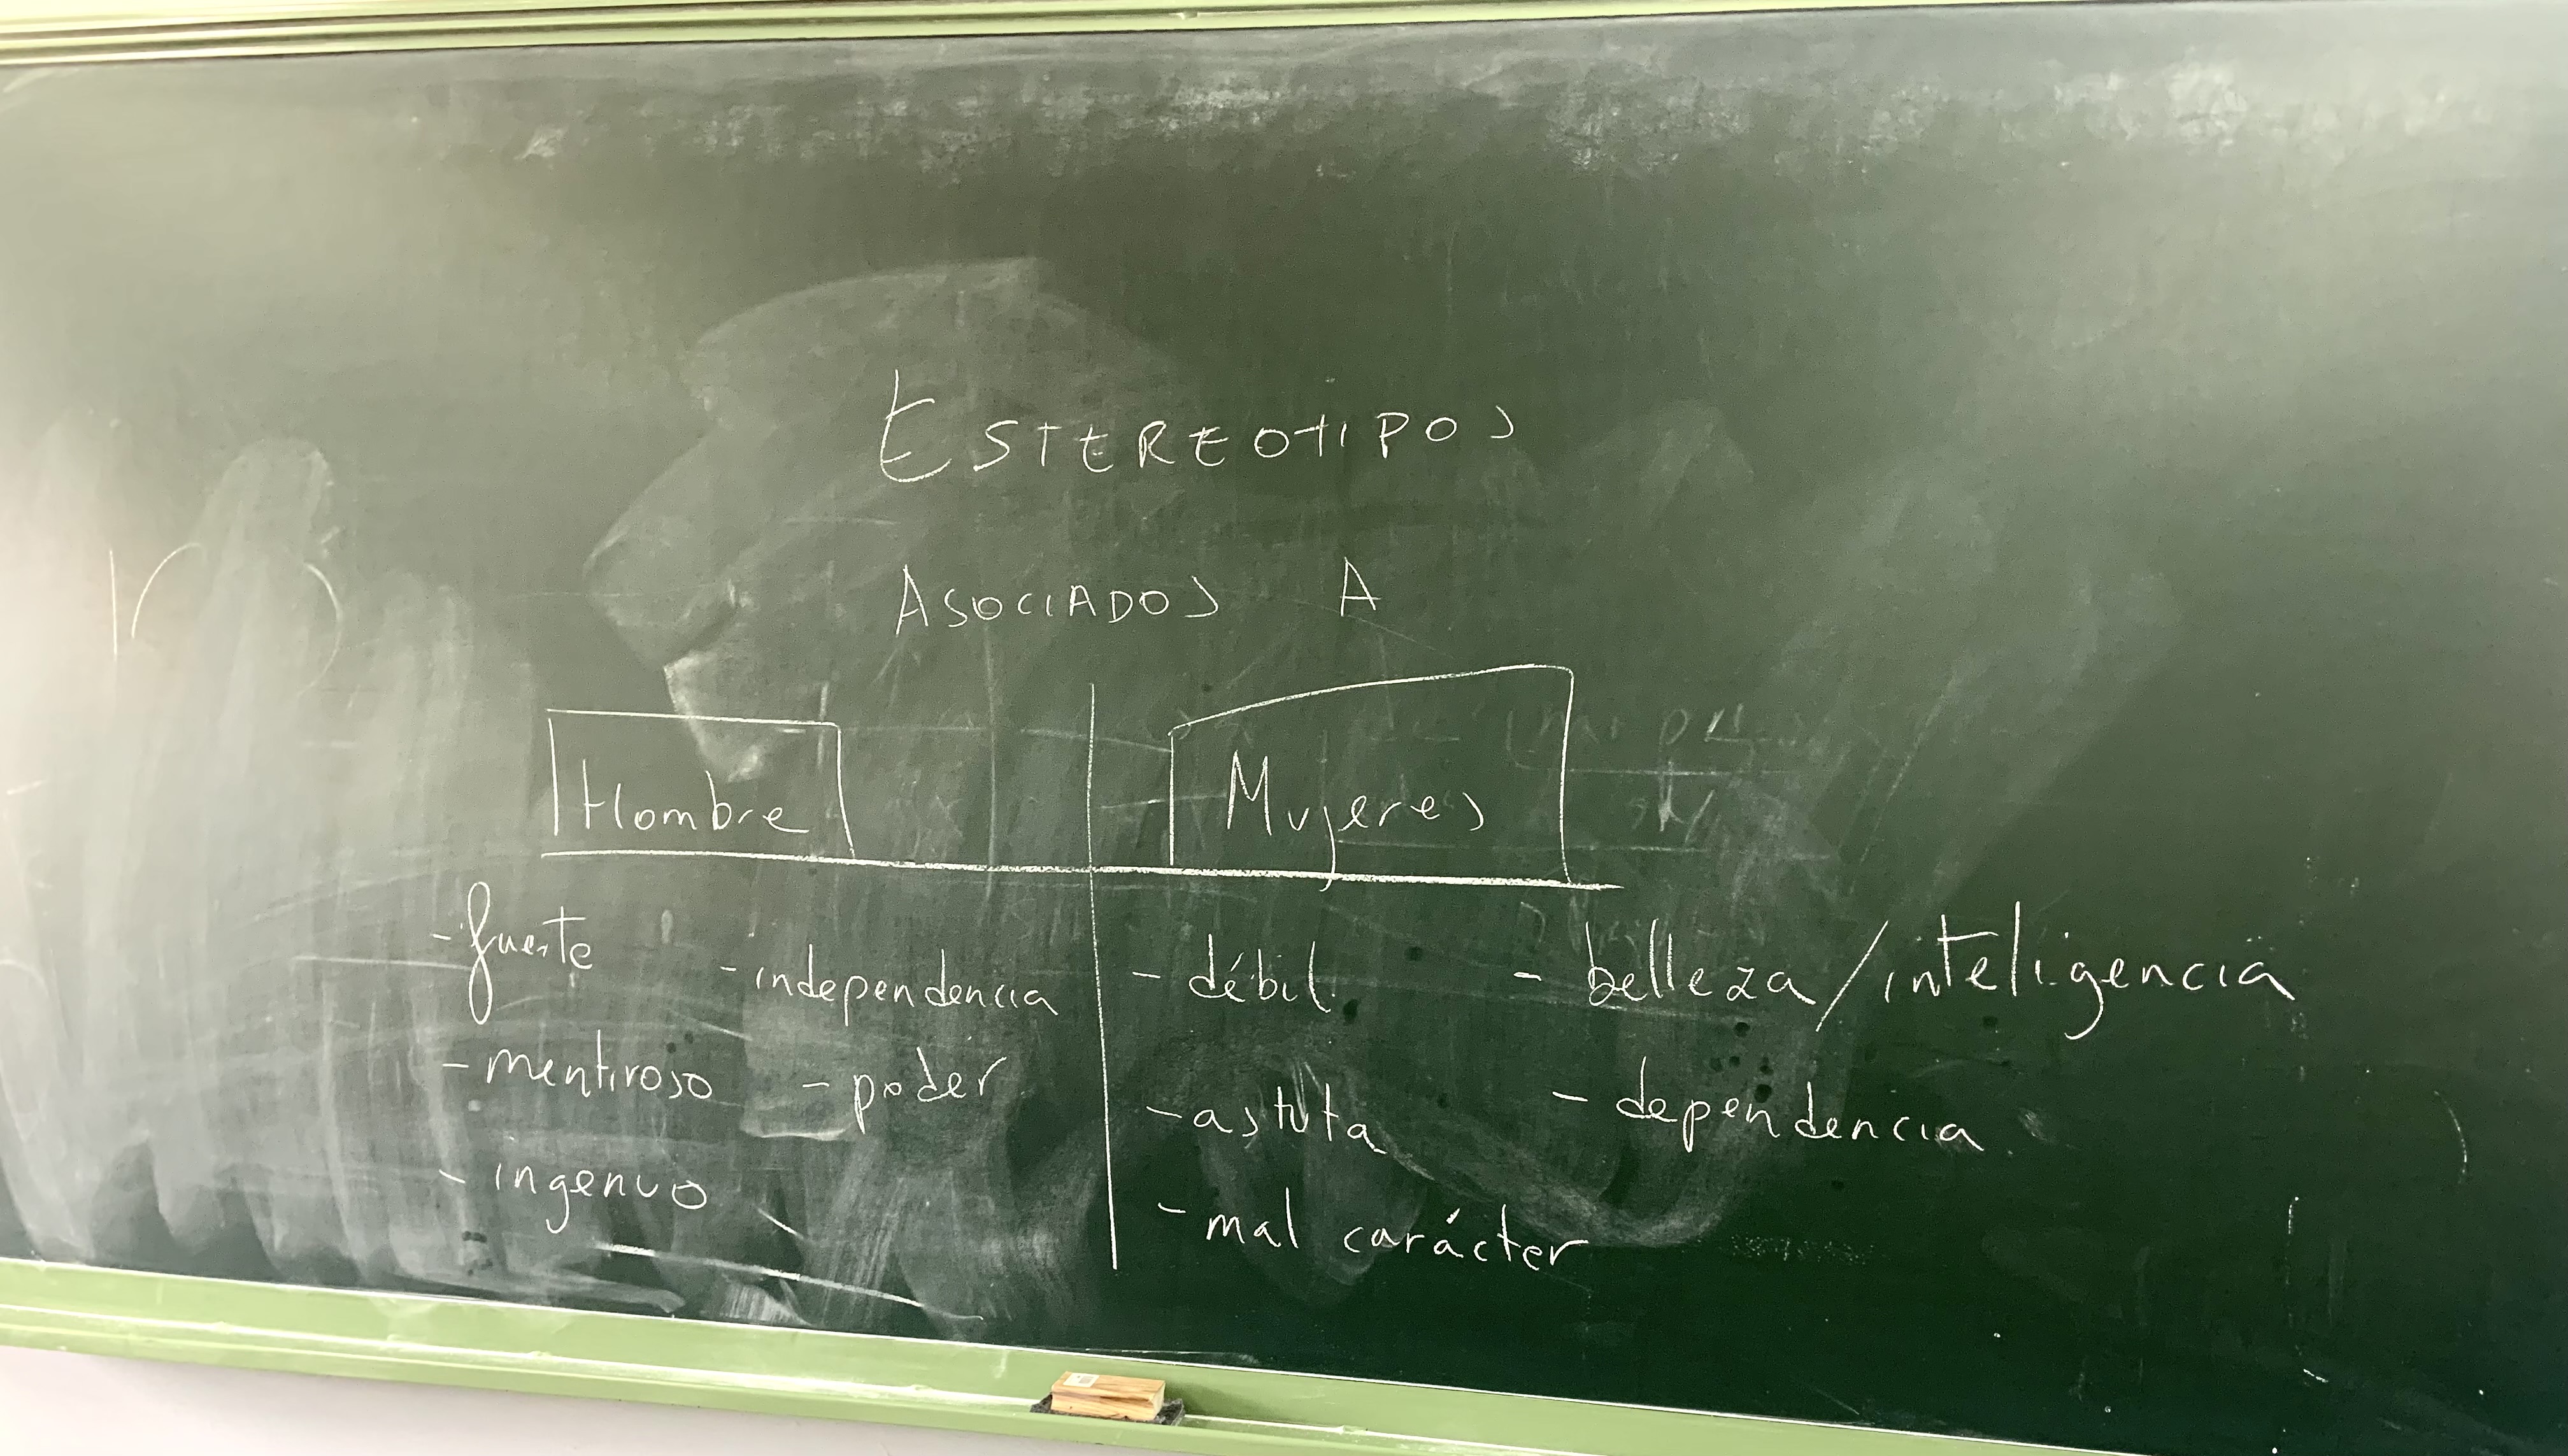 ESTEREOTIPOS
ASOCIADOS A
Hombre
Mujeres
- fuerte
- independencia
- mentiroso
- poder
- ingenuo
- débil
- belleza/inteligencia
- astuta
- dependencia
- mal carácter